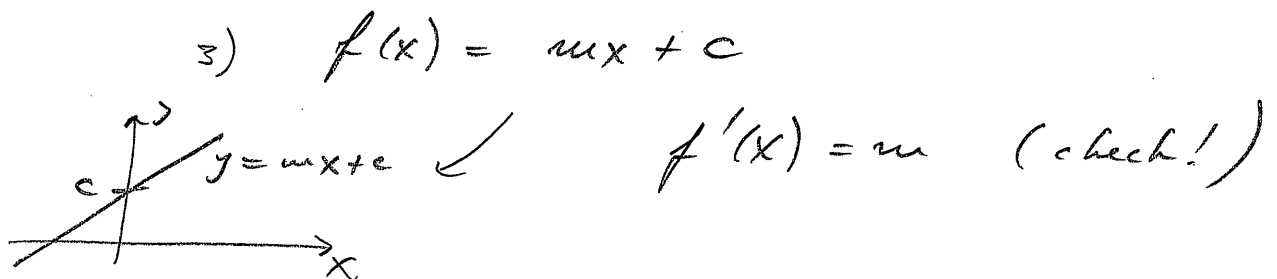 3) f(x) = mx + c
y
y = mx+c
f'(x) = m (check!)
c
x